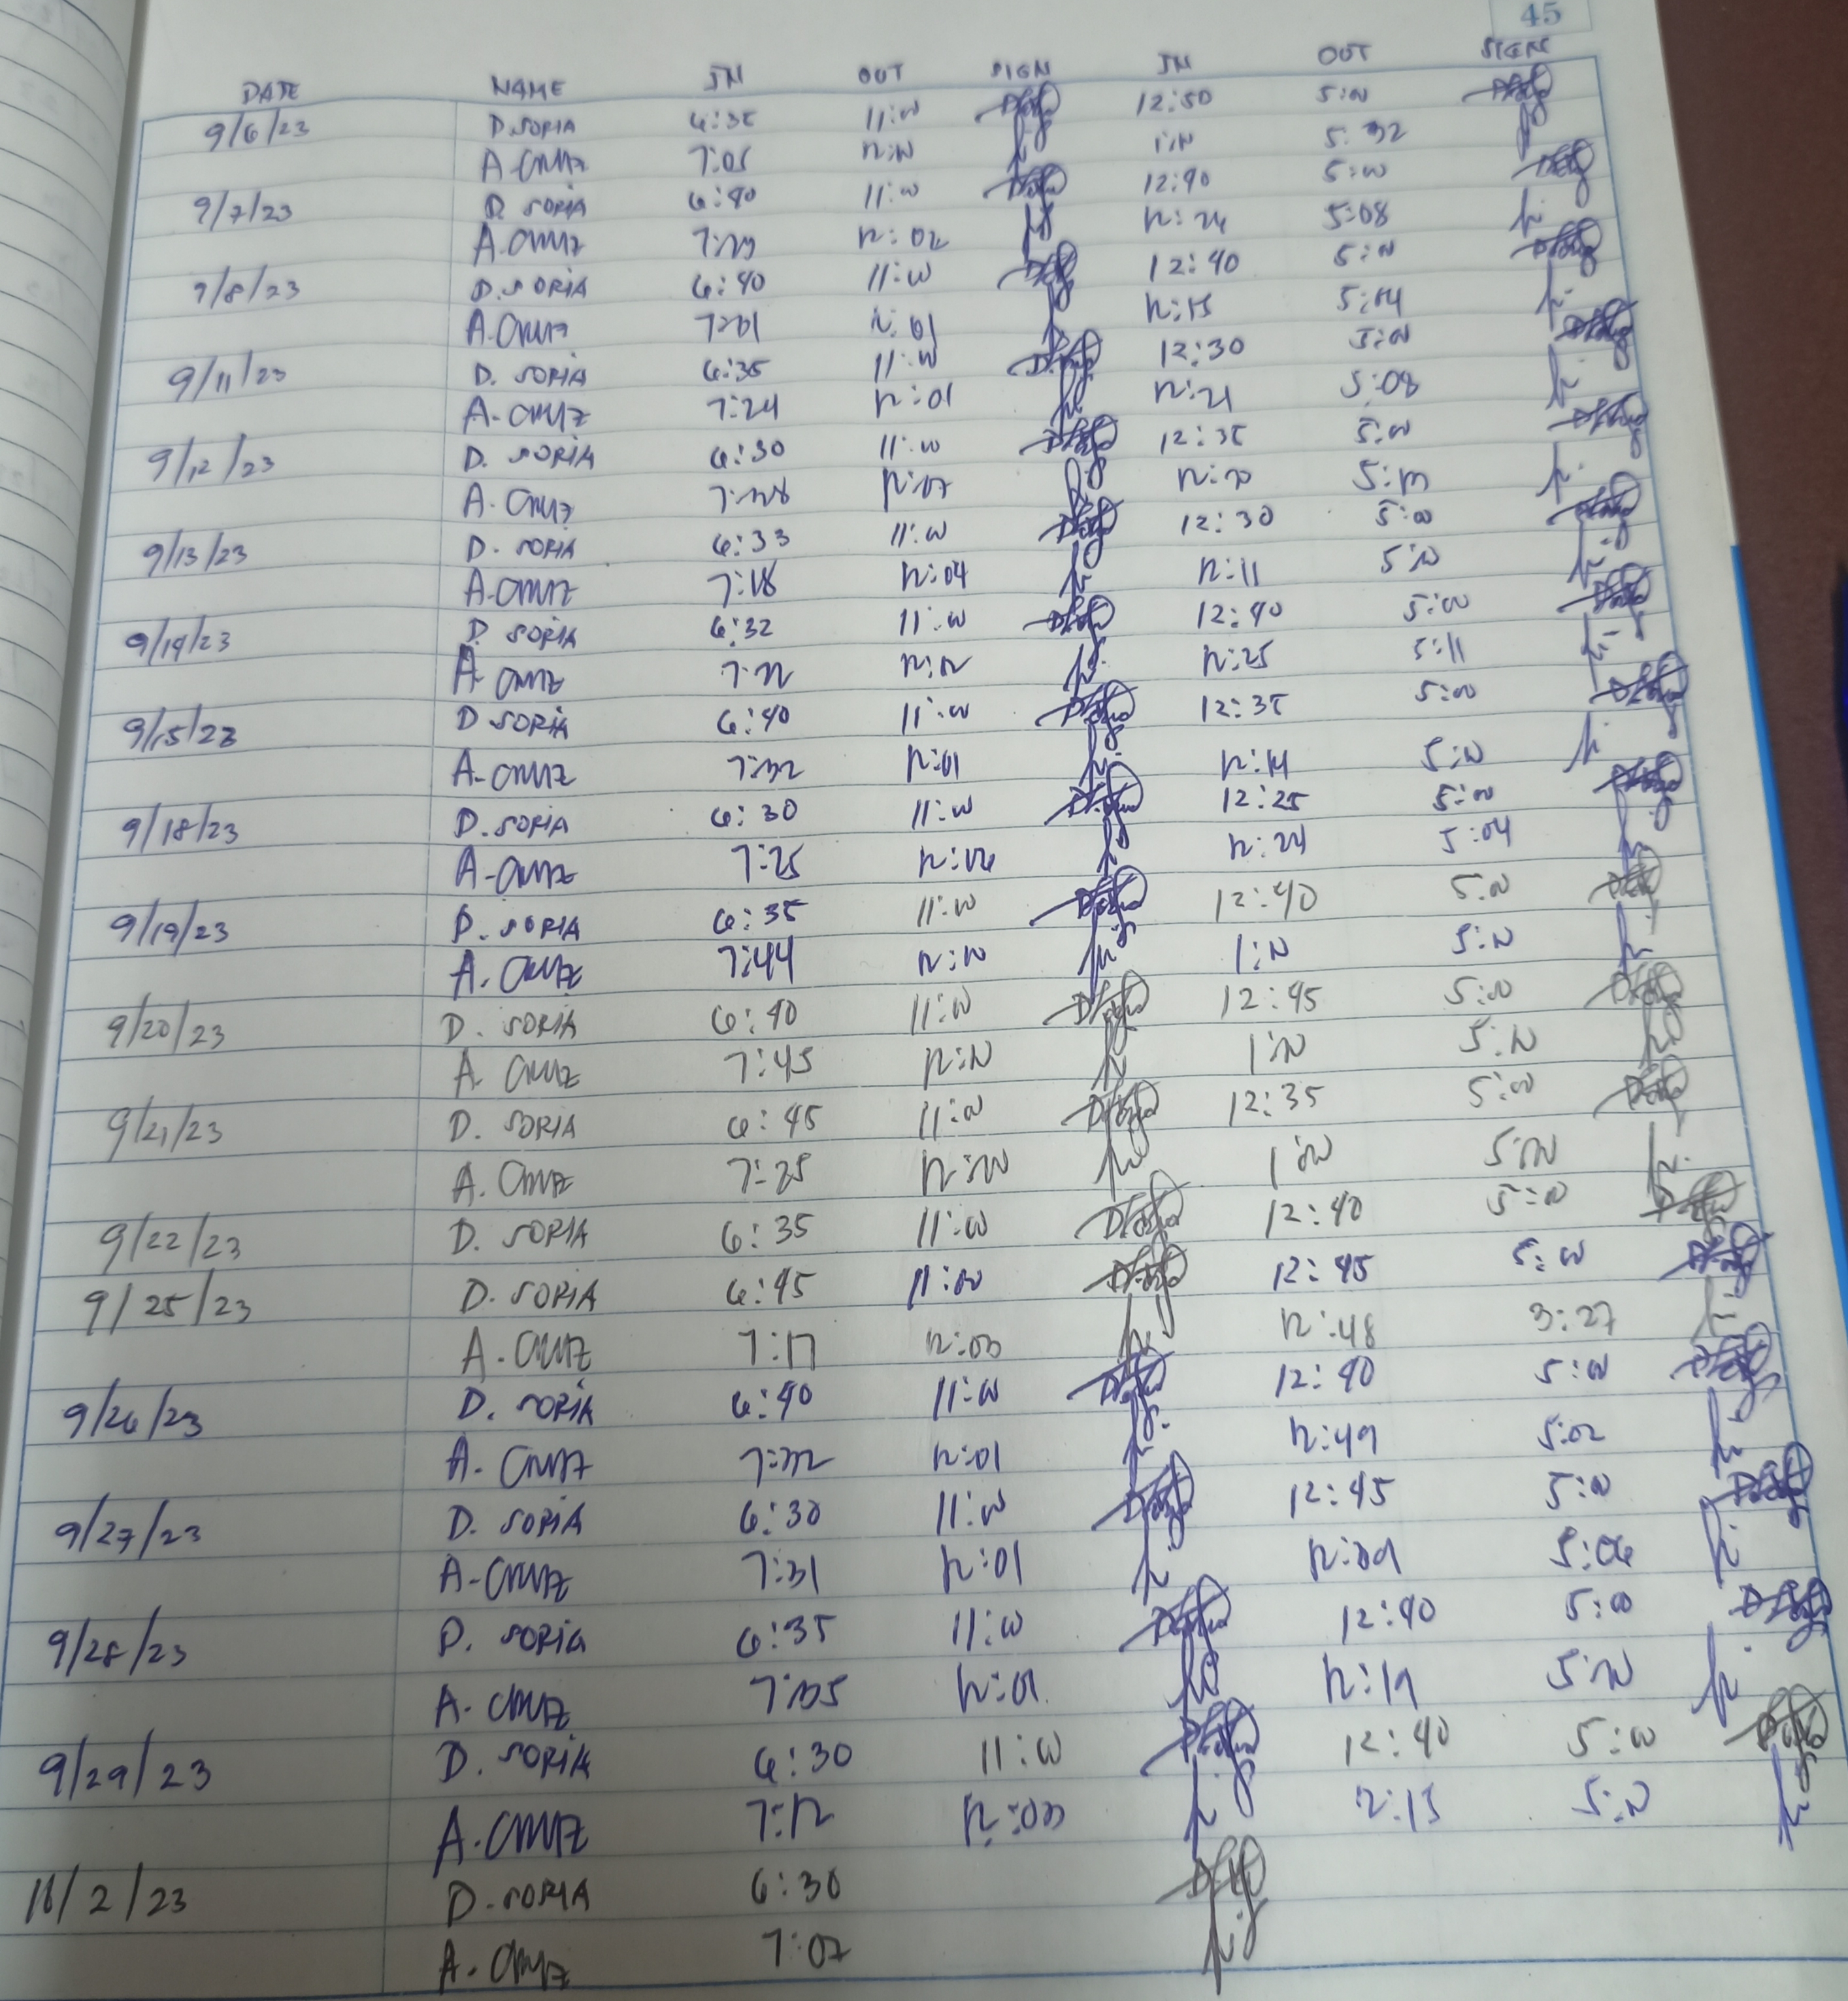 45
DATE NAME IN OUT SIGN IN OUT SIGN
9/6/23 D. SORIA 6:35 11:00 12:50 5:00
A. CRUZ 7:05 1:00 5:32
9/7/23 D. SORIA 6:40 11:00 12:40 5:00
A. CRUZ 12:02 5:08
9/8/23 D. SORIA 6:40 11:00 12:40 5:00
A. CRUZ 12:01 12:15 5:04
9/11/23 D. SORIA 6:35 11:00 12:30 5:00
A. CRUZ 7:24 12:01 12:21 5:08
9/12/23 D. SORIA 6:30 11:00 12:35 5:00
A. CRUZ 12:07
9/13/23 D. SORIA 6:33 11:00 12:30 5:00
A. CRUZ 7:18 12:04 12:11
9/14/23 D. SORIA 6:32 11:00 12:40 5:00
A. CRUZ 12:25 5:11
9/15/23 D. SORIA 6:40 11:00 12:35 5:00
A. CRUZ 7:32 12:01 12:14
9/18/23 D. SORIA 6:30 11:00 12:25 5:00
A. CRUZ 7:25 12:06 12:24 5:04
9/19/23 D. SORIA 6:35 11:00 12:40 5:00
A. CRUZ 7:44 12:00 1:00 5:00
9/20/23 D. SORIA 6:40 11:00 12:45 5:00
A. CRUZ 7:45 12:00 1:00 5:00
9/21/23 D. SORIA 6:45 11:00 12:35 5:00
A. CRUZ 7:25 12:00 1:00
9/22/23 D. SORIA 6:35 11:00 12:40 5:00
9/25/23 D. SORIA 6:45 11:00 12:45 5:00
A. CRUZ 7:17 12:48 3:27
9/26/23 D. SORIA 6:40 11:00 12:40 5:00
A. CRUZ 7:32 12:01 12:49 5:02
9/27/23 D. SORIA 6:30 11:00 12:45 5:00
A. CRUZ 7:31 12:01 5:06
9/28/23 D. SORIA 6:35 11:00 12:40 5:00
A. CRUZ 7:35 12:01 12:19
9/29/23 D. SORIA 6:30 11:00 12:40 5:00
A. CRUZ 7:12 12:13
10/2/23 D. SORIA 6:30
A. CRUZ 7:07